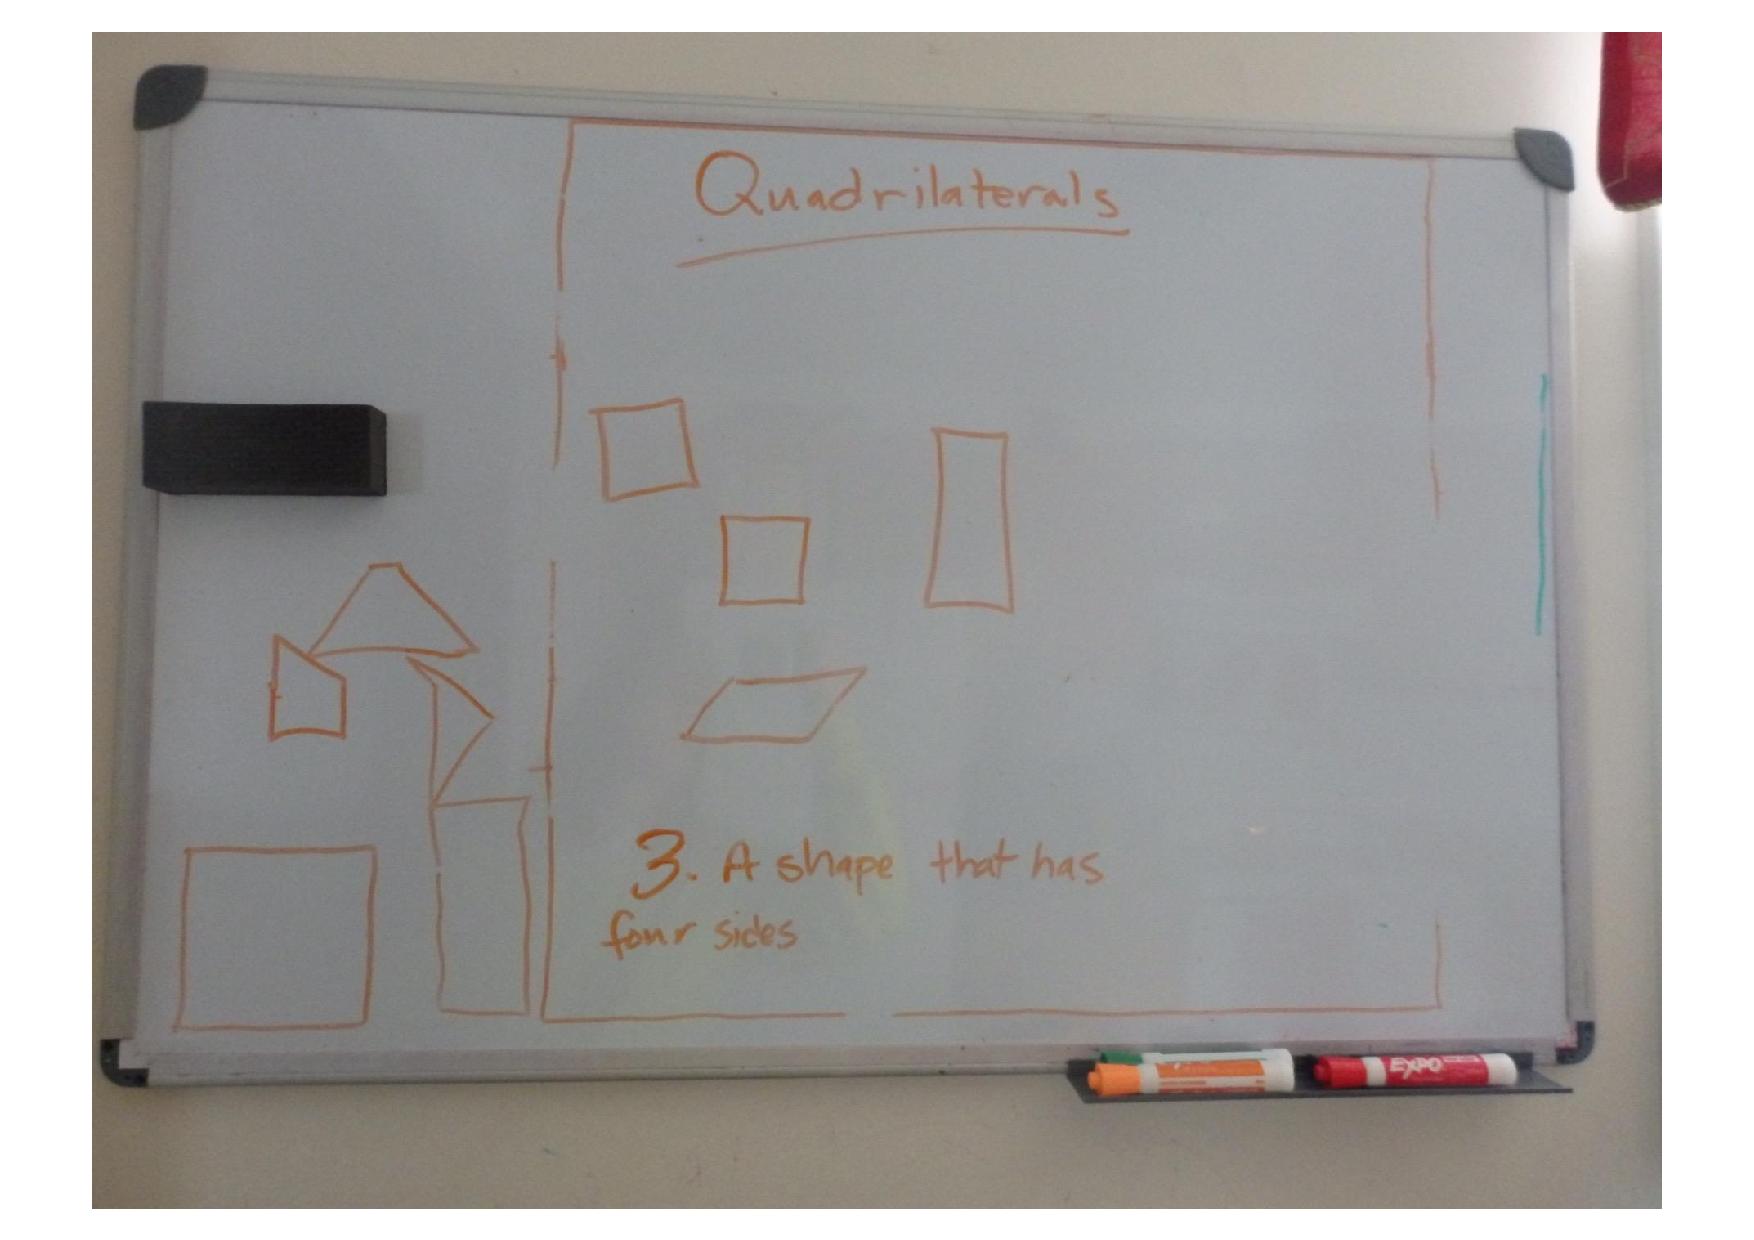 Quadrilaterals
3. A shape that has
four sides
EXPO